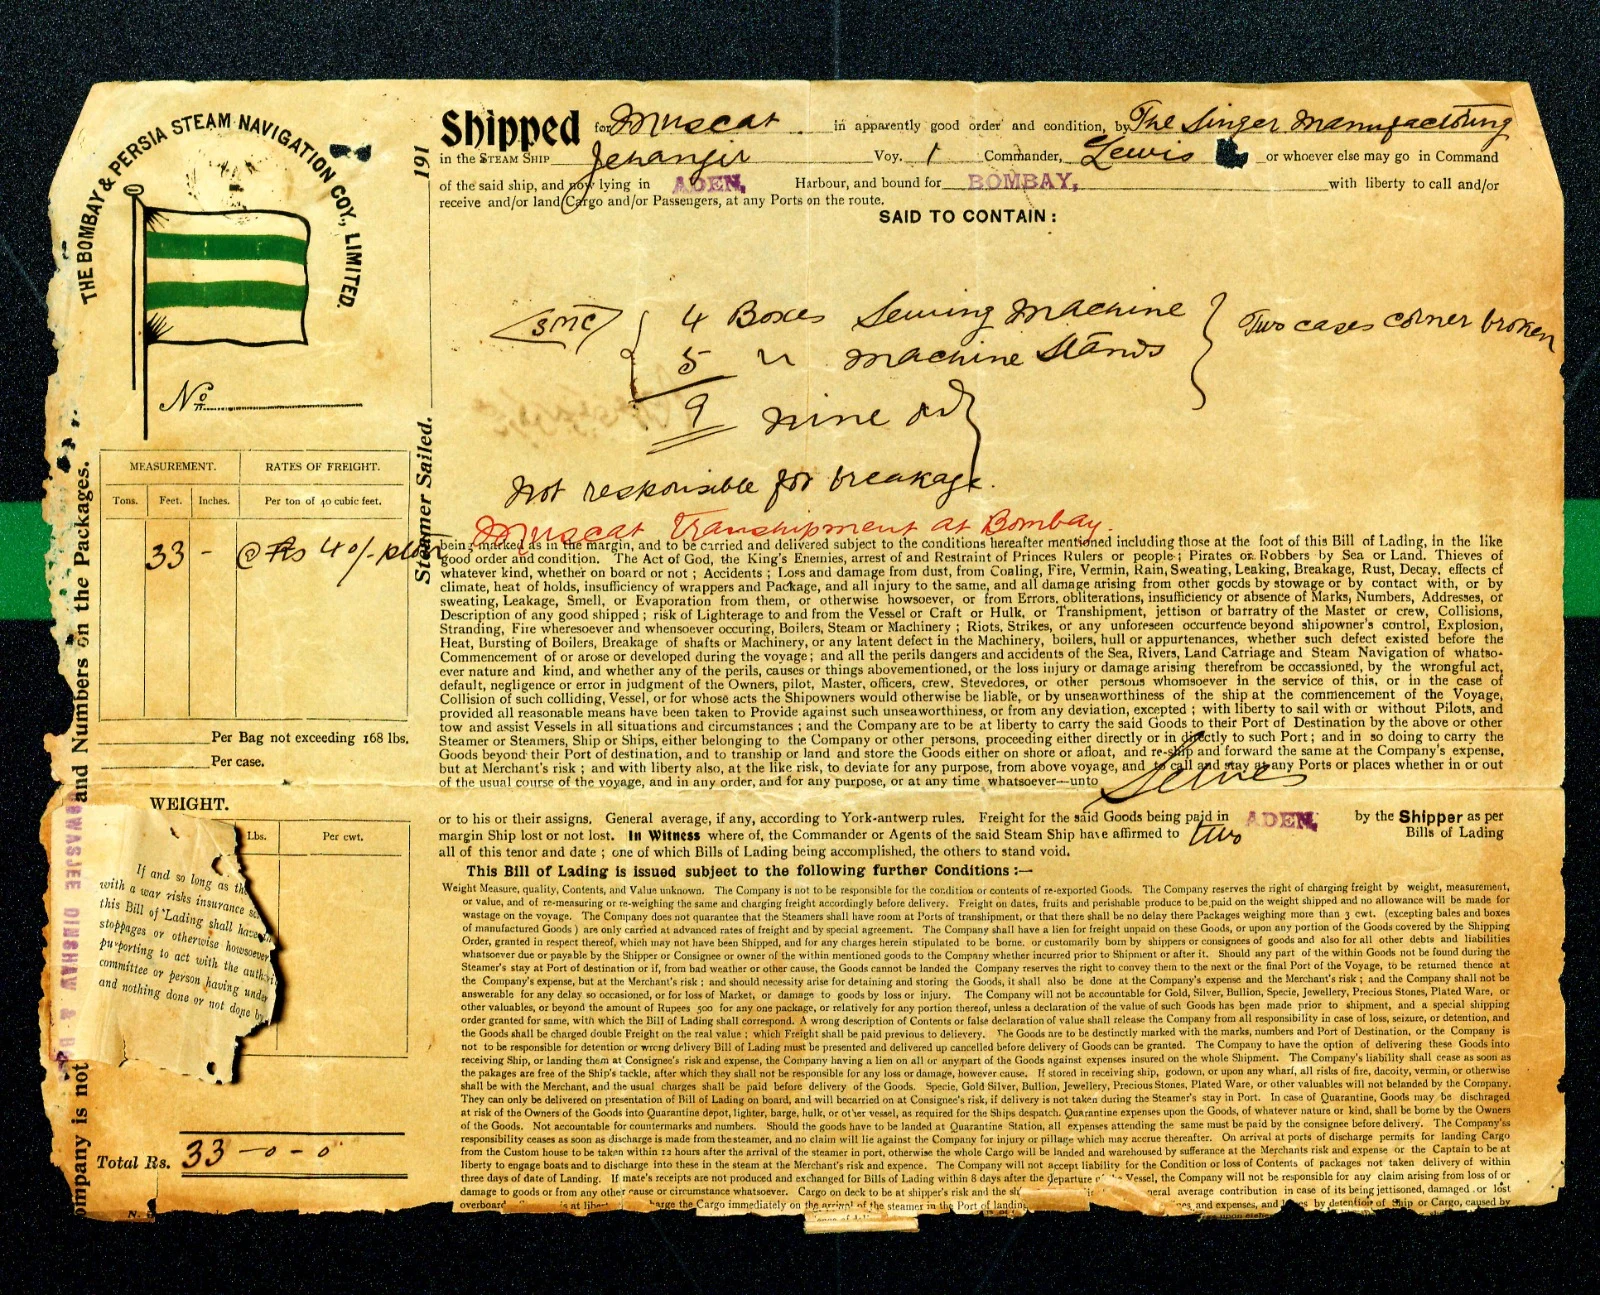 THE BOMBAY & PERSIA STEAM NAVIGATION COY., LIMITED.
No
191
Steamer Sailed.
and Numbers on the Packages.
ompany is not
COWASJEE DINSHAW & B
Shipped for Muscat in apparently good order and condition, by The Singer Manufacturing
in the STEAM SHIP Jehangir Voy. 1 Commander, Lewis or whoever else may go in Command
of the said ship, and now lying in ADEN, Harbour, and bound for BOMBAY, with liberty to call and/or
receive and/or land Cargo and/or Passengers, at any Ports on the route.
SAID TO CONTAIN :
SMC 4 Boxes Sewing Machine Two cases corner broken
5 " Machine Stands
9 Nine
Not responsible for breakage.
Muscat Transhipment at Bombay.
MEASUREMENT. RATES OF FREIGHT.
Tons. Feet. Inches. Per ton of 40 cubic feet.
33 - @ Rs 40/-
Per Bag not exceeding 168 lbs.
Per case.
WEIGHT.
Lbs. Per cwt.
If and so long as th
with a war risks insurance
this Bill of Lading shall have
stoppages or otherwise howsoever
purporting to act with the
committee or person having under
and nothing done or not done by
Total Rs. 33-0-0
being marked as in the margin, and to be carried and delivered subject to the conditions hereafter mentioned including those at the foot of this Bill of Lading, in the like
good order and condition. The Act of God, the King's Enemies, arrest of and Restraint of Princes Rulers or people ; Pirates or Robbers by Sea or Land. Thieves of
whatever kind, whether on board or not ; Accidents ; Loss and damage from dust, from Coaling, Fire, Vermin, Rain, Sweating, Leaking, Breakage, Rust, Decay, effects of
climate, heat of holds, insufficiency of wrappers and Package, and all injury to the same, and all damage arising from other goods by stowage or by contact with, or by
sweating, Leakage, Smell, or Evaporation from them, or otherwise howsoever, or from Errors, obliterations, insufficiency or absence of Marks, Numbers, Addresses, or
Description of any good shipped ; risk of Lighterage to and from the Vessel or Craft or Hulk, or Transhipment, jettison or barratry of the Master or crew, Collisions,
Stranding, Fire wheresoever and whensoever occuring, Boilers, Steam or Machinery ; Riots, Strikes, or any unforeseen occurrence beyond shipowner's control, Explosion,
Heat, Bursting of Boilers, Breakage of shafts or Machinery, or any latent defect in the Machinery, boilers, hull or appurtenances, whether such defect existed before the
Commencement of or arose or developed during the voyage ; and all the perils dangers and accidents of the Sea, Rivers, Land Carriage and Steam Navigation of whatso-
ever nature and kind, and whether any of the perils, causes or things abovementioned, or the loss injury or damage arising therefrom be occassioned, by the wrongful act,
default, negligence or error in judgment of the Owners, pilot, Master, officers, crew, Stevedores, or other persons whomsoever in the service of this, or in the case of
Collision of such colliding, Vessel, or for whose acts the Shipowners would otherwise be liable, or by unseaworthiness of the ship at the commencement of the Voyage,
provided all reasonable means have been taken to Provide against such unseaworthiness, or from any deviation, excepted ; with liberty to sail with or without Pilots, and
tow and assist Vessels in all situations and circumstances ; and the Company are to be at liberty to carry the said Goods to their Port of Destination by the above or other
Steamer or Steamers, Ship or Ships, either belonging to the Company or other persons, proceeding either directly or in directly to such Port ; and in so doing to carry the
Goods beyond their Port of destination, and to tranship or land and store the Goods either on shore or afloat, and re-ship and forward the same at the Company's expense,
but at Merchant's risk ; and with liberty also, at the like risk, to deviate for any purpose, from above voyage, and to call and stay at any Ports or places whether in or out
of the usual course of the voyage, and in any order, and for any purpose, or at any time whatsoever—unto
or to his or their assigns. General average, if any, according to York-antwerp rules. Freight for the said Goods being paid in ADEN, by the Shipper as per
margin Ship lost or not lost. In Witness where of, the Commander or Agents of the said Steam Ship have affirmed to two Bills of Lading
all of this tenor and date ; one of which Bills of Lading being accomplished, the others to stand void.
This Bill of Lading is issued subject to the following further Conditions :—
Weight Measure, quality, Contents, and Value unknown. The Company is not to be responsible for the condition or contents of re-exported Goods. The Company reserves the right of charging freight by weight, measurement,
or value, and of re-measuring or re-weighing the same and charging freight accordingly before delivery. Freight on dates, fruits and perishable produce to be paid on the weight shipped and no allowance will be made for
wastage on the voyage. The Company does not quarantee that the Steamers shall have room at Ports of transhipment, or that there shall be no delay there Packages weighing more than 3 cwt. (excepting bales and boxes
of manufactured Goods ) are only carried at advanced rates of freight and by special agreement. The Company shall have a lien for freight unpaid on these Goods, or upon any portion of the Goods covered by the Shipping
Order, granted in respect thereof, which may not have been Shipped, and for any charges herein stipulated to be borne. or customarily born by shippers or consignees of goods and also for all other debts and liabilities
whatsoever due or payable by the Shipper or Consignee or owner of the within mentioned goods to the Company whether incurred prior to Shipment or after it. Should any part of the within Goods not be found during the
Steamer's stay at Port of destination or if, from bad weather or other cause, the Goods cannot be landed the Company reserves the right to convey them to the next or the final Port of the Voyage, to be returned thence at
the Company's expense, but at the Merchant's risk ; and should necessity arise for detaining and storing the Goods, it shall also be done at the Company's expense and the Merchant's risk ; and the Company shall not be
answerable for any delay so occasioned, or for loss of Market, or damage to goods by loss or injury. The Company will not be accountable for Gold, Silver, Bullion, Specie, Jewellery, Precious Stones, Plated Ware, or
other valuables, or beyond the amount of Rupees 500 for any one package, or relatively for any portion thereof, unless a declaration of the value of such Goods has been made prior to shipment, and a special shipping
order granted for same, with which the Bill of Lading shall correspond. A wrong description of Contents or false declaration of value shall release the Company from all responsibility in case of loss, seizure, or detention, and
the Goods shall be charged double Freight on the real value ; which Freight shall be paid previous to delievery. The Goods are to be destinctly marked with the marks, numbers and Port of Destination, or the Company is
not to be responsible for detention or wrong delivery Bill of Lading must be presented and delivered up cancelled before delivery of Goods can be granted. The Company to have the option of delivering these Goods into
receiving Ship, or landing them at Consignee's risk and expense, the Company having a lien on all or anypart of the Goods against expenses insured on the whole Shipment. The Company's liability shall cease as soon as
the pakages are free of the Ship's tackle, after which they shall not be responsible for any loss or damage, however cause. If stored in receiving ship, godown, or upon any wharf, all risks of fire, dacoity, vermin, or otherwise
shall be with the Merchant, and the usual charges shall be paid before delivery of the Goods. Specie, Gold Silver, Bullion, Jewellery, Precious Stones, Plated Ware, or other valuables will not belanded by the Company.
They can only be delivered on presentation of Bill of Lading on board, and will becarried on at Consignee's risk, if delivery is not taken during the Steamer's stay in Port. In case of Quarantine, Goods may be discharged
at risk of the Owners of the Goods into Quarantine depot, lighter, barge, hulk, or other vessel, as required for the Ships despatch. Quarantine expenses upon the Goods, of whatever nature or kind, shall be borne by the Owners
of the Goods. Not accountable for countermarks and numbers. Should the goods have to be landed at Quarantine Station, all expenses attending the same must be paid by the consignee before delivery. The Company'ss
responsibility ceases as soon as discharge is made from the steamer, and no claim will lie against the Company for injury or pillage which may accrue thereafter. On arrival at ports of discharge permits for landing Cargo
from the Custom house to be taken within 12 hours after the arrival of the steamer in port, otherwise the whole Cargo will be landed and warehoused by sufferance at the Merchants risk and expense or the Captain to be at
liberty to engage boats and to discharge into these in the steam at the Merchant's risk and expence. The Company will not accept liability for the Condition or loss of Contents of packages not taken delivery of within
three days of date of Landing. If mate's receipts are not produced and exchanged for Bills of Lading within 8 days after the departure of the Vessel, the Company will not be responsible for any claim arising from loss of or
damage to goods or from any other cause or circumstance whatsoever. Cargo on deck to be at shipper's risk and the sh eneral average contribution in case of its being jettisoned, damaged or lost
overboard is at libert harge the Cargo immediately on the arrival of the steamer in the Port of landing es, and expenses, and by detention of Ship or Cargo, caused by